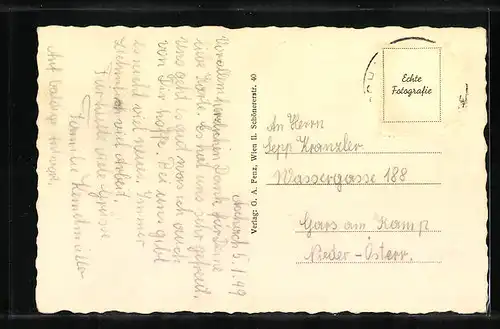 5./1.49
Vor allem herzlichen Dank für Deine
liebe Karte. Es hat uns sehr gefreut.
Uns geht es gut was ich auch
von Dir hoffe. Bei uns gibt
es nicht viel neues. Immer
viel Arbeit.
Für heute viele Grüsse
Familie
Auf baldiges
Verlag: G. A. Penz, Wien II. Schönererstr. 40
Echte
Fotografie
An Herrn
Sepp Kranzler
Wassergasse 188
Gars am Kamp
Nieder-Österr.